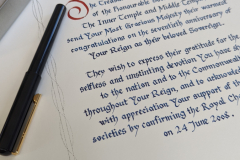 The Treasure
of the Honourable
The Inner Temple and Middle Temple
send Your Most Gracious Majesty their warmest
congratulations on the seventieth anniversary of
Your Reign as their beloved Sovereign.
They wish to express their gratitude for the
selfless and unstinting devotion You have sh
to the nation and to the Common
throughout Your Reign, and to acknowled
with appreciation Your support of th
societies by confirming the Royal Ch
on 24 June 2008.